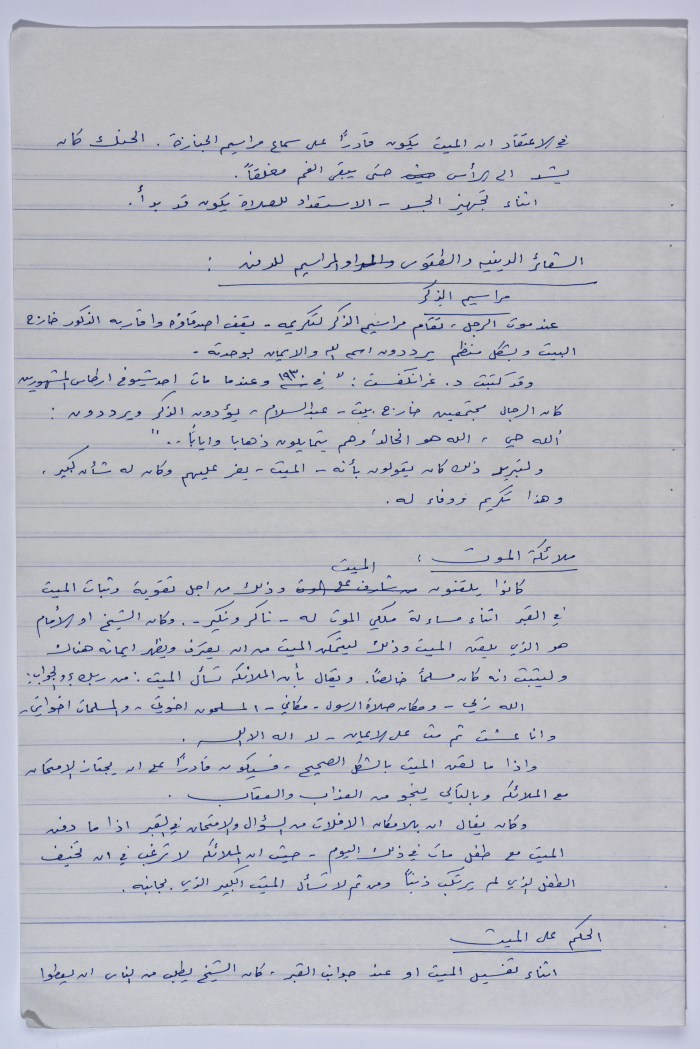 في الاعتقاد ان الميت يكون قادراً على سماع مراسيم الجنازة. الحنك كان
يشد الى الرأس حتى يبقى الفم مغلقاً.
اثناء تجهيز الجسد - الاستعداد للصلاة يكون قد بدأ.
الشعائر الدينيه والطقوس والمراسيم للدفن :
مراسيم الذِكر
عند موت الرجل، تقام مراسيم الذكر لتكريمه - يقف اصدقاؤه واقاربه الذكور خارج
البيت وبشكل منتظم يرددون اسم الله والايمان بوحدته -
وقد كتبت د. غرانكفست : " في سنة ١٩٣٠ وعندما مات احد شيوخ ارطاس المشهورين
كان الرجال مجتمعين خارج بيت - عبد السلام - يؤدون الذكر ويرددون :
ألله حي ، الله هو الخالد وهم يتمايلون ذهابا واياباً .. "
ولتبرير ذلك كان يقولون بأنه - الميت - يعز عليهم وكان له شأن كبير ،
وهذا تكريم ووفاء له .
ملائكة الموت :
الميت
كانوا يلقنون من شارف على الموت وذلك من اجل تقوية وثبات الميت
في القبر اثناء مساءلة ملكي الموت له - ناكر ونكير -. وكان الشيخ او الأمام
هو الذي يلقن الميت وذلك ليتمكن الميت من ان يعترف ويظهر ايمانه هناك
وليثبت انه كان مسلماً خالصاً. ويقال بأن الملائكه تسأل الميت : من ربك ؟ والجواب :
الله ربي - ومكان صلاة الرسول - مكاني - المسلمون اخوتي - والمسلمات اخواتي -
وانا عشت ثم مت على الايمان - لا اله الا الله .
واذا ما لقن الميت بالشكل الصحيح ، فسيكون قادراً على ان يجتاز الامتحان
مع الملائكه وبالتالي ينجو من العذاب والعقاب .
وكان يقال ان بالامكان الافلات من السؤال والامتحان في القبر اذا ما دفن
الميت مع طفل مات في ذلك اليوم - حيث ان الملائكه لا ترغب في ان تخيف
الطفل الذي لم يرتكب ذنباً ومن ثم لا تسأل الميت الكبير الذي بجانبه .
الحكم على الميت
اثناء تغسيل الميت او عند جوانب القبر ، كان الشيخ يطلب من الناس ان يعطوا